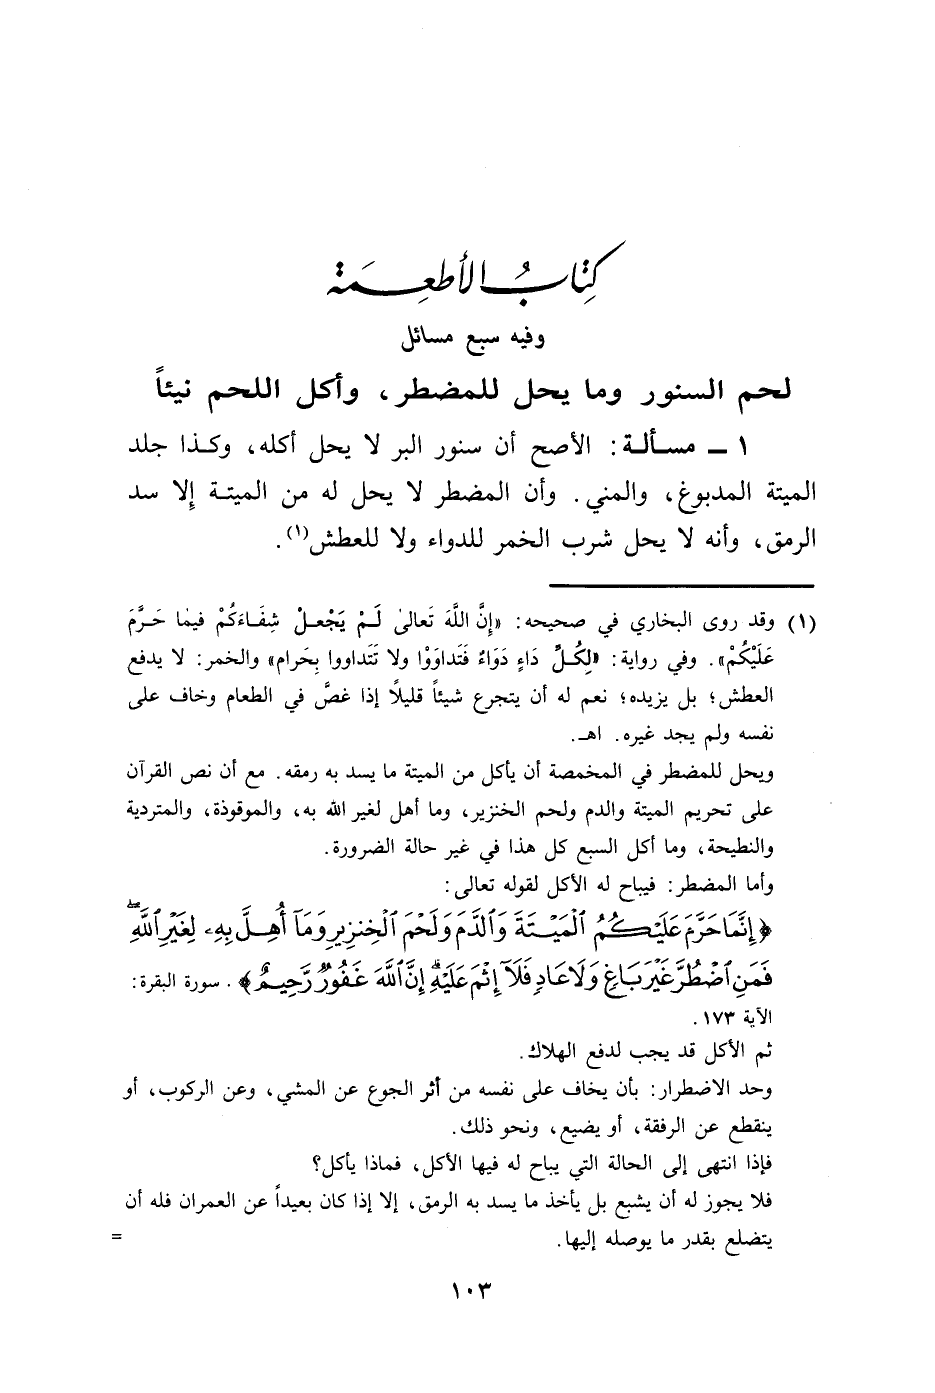 كِتَابُ الأَطعِمَة
وفيه سبع مسائل
لحم السنور وما يحل للمضطر، وأكل اللحم نيئاً
١ ـ مسألة: الأصح أن سنور البر لا يحل أكله، وكذا جلد
الميتة المدبوغ، والمني. وأن المضطر لا يحل له من الميتة إلا سد
الرمق، وأنه لا يحل شرب الخمر للدواء ولا للعطش(١).
(١) وقد روى البخاري في صحيحه: «إِنَّ اللَّهَ تَعالىٰ لَمْ يَجْعلْ شِفَاءَكُمْ فيمَا حَرَّمَ
عَلَيْكُمْ». وفي رواية: «لِكُلِّ دَاءٍ دَوَاءٌ فَتَداوَوْا ولا تَتَداووا بِحَرام» والخمر: لا يدفع
العطش؛ بل يزيده؛ نعم له أن يتجرع شيئاً قليلاً إذا غصَّ في الطعام وخاف على
نفسه ولم يجد غيره. اهـ.
ويحل للمضطر في المخمصة أن يأكل من الميتة ما يسد به رمقه. مع أن نص القرآن
على تحريم الميتة والدم ولحم الخنزير، وما أهل لغير الله به، والموقوذة، والمتردية
والنطيحة، وما أكل السبع كل هذا في غير حالة الضرورة.
وأما المضطر: فيباح له الأكل لقوله تعالى:
﴿إِنَّمَا حَرَّمَ عَلَيْكُمُ ٱلْمَيْتَةَ وَٱلدَّمَ وَلَحْمَ ٱلْخِنزِيرِ وَمَآ أُهِلَّ بِهِۦ لِغَيْرِ ٱللَّهِۖ
فَمَنِ ٱضْطُرَّ غَيْرَ بَاغٍ وَلَا عَادٍ فَلَآ إِثْمَ عَلَيْهِۚ إِنَّ ٱللَّهَ غَفُورٌ رَّحِيمٌ﴾. سورة البقرة:
الآية ١٧٣.
ثم الأكل قد يجب لدفع الهلاك.
وحد الاضطرار: بأن يخاف على نفسه من أثر الجوع عن المشي، وعن الركوب، أو
ينقطع عن الرفقة، أو يضيع، ونحو ذلك.
فإذا انتهى إلى الحالة التي يباح له فيها الأكل، فماذا يأكل؟
فلا يجوز له أن يشبع بل يأخذ ما يسد به الرمق، إلا إذا كان بعيداً عن العمران فله أن
يتضلع بقدر ما يوصله إليها. =
١٠٣